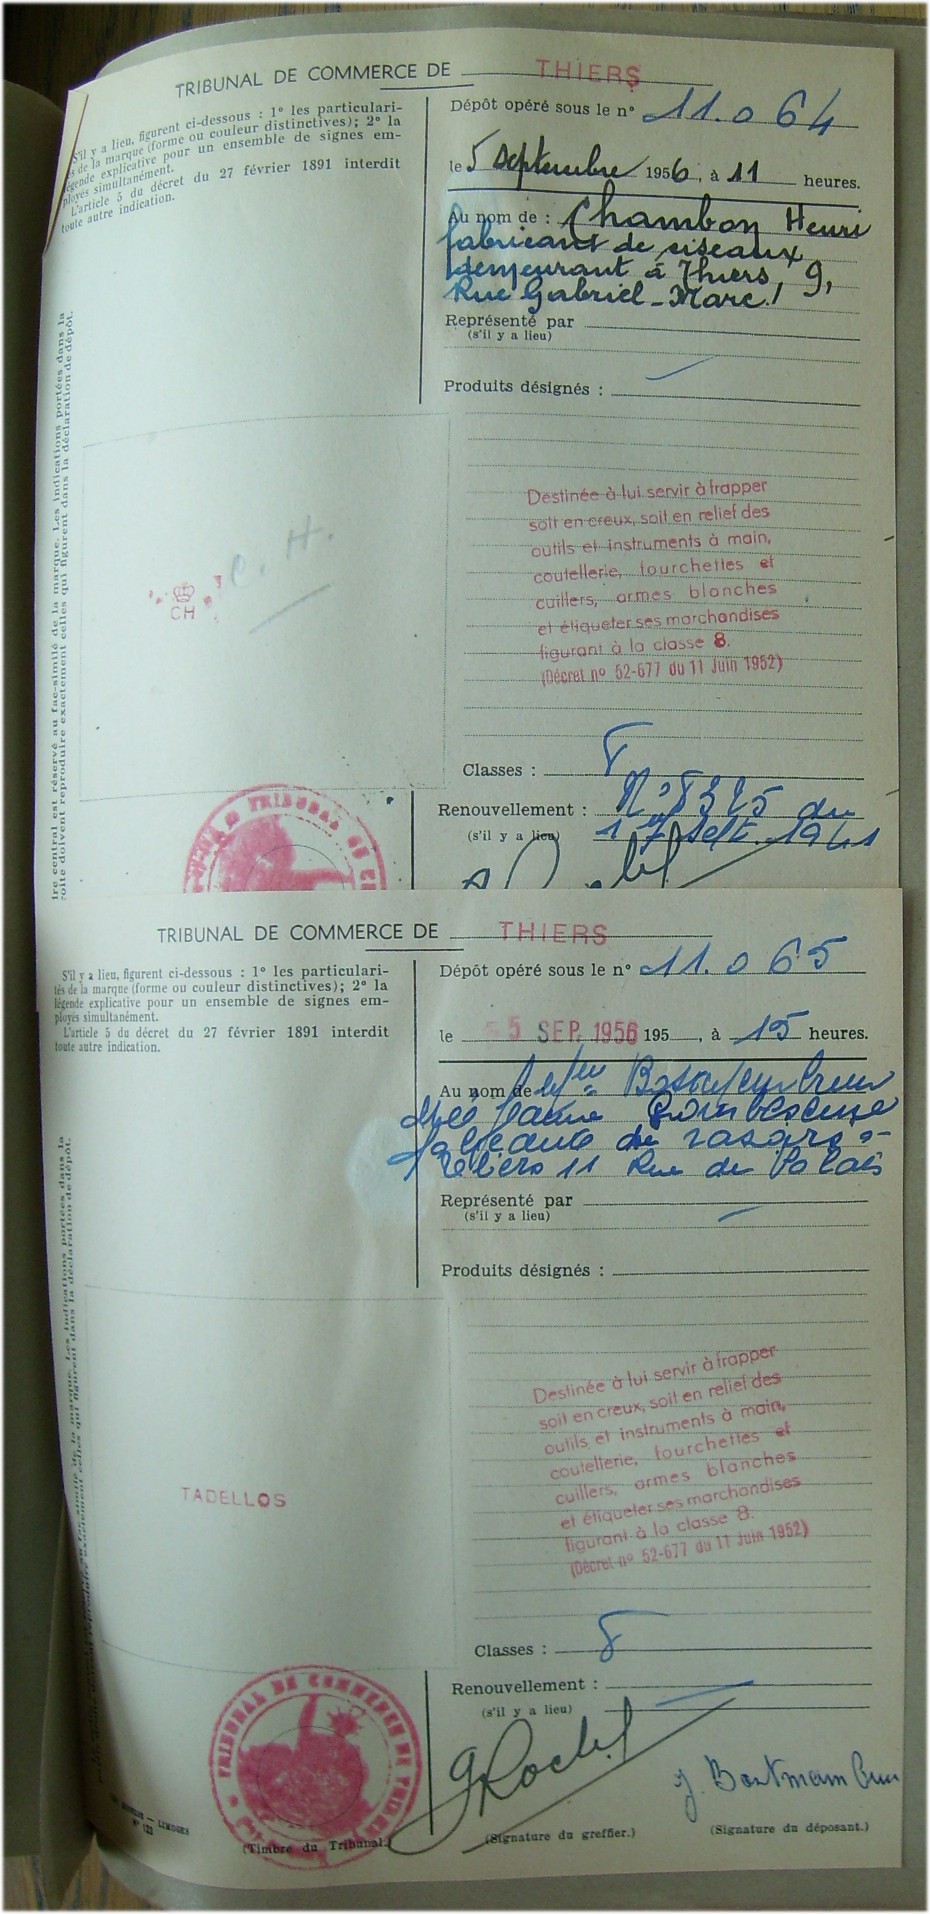 TRIBUNAL DE COMMERCE DE THIERS
S'il y a lieu, figurent ci-dessous : 1º les particulari-
tés de la marque (forme ou couleur distinctives); 2º la
légende explicative pour un ensemble de signes em-
ployés simultanément.
L'article 5 du décret du 27 février 1891 interdit
toute autre indication.
Dépôt opéré sous le nº 11.064
le 5 septembre 1956, à 11 heures.
Au nom de : Chambon Henri
fabricant de ciseaux
demeurant à Thiers, 9,
Rue Gabriel-Marc.
Représenté par
(s'il y a lieu)
Produits désignés :
ire central est réservé au fac-similé de la marque. Les indications portées dans la
roite doivent reproduire exactement celles qui figurent dans la déclaration de dépôt.
C. H.
CH
Destinée à lui servir à frapper
soit en creux, soit en relief des
outils et instruments à main,
coutellerie, fourchettes et
cuillers, armes blanches
et étiqueter ses marchandises
figurant à la classe 8.
(Décret nº 52-677 du 11 Juin 1952)
Classes : 8
Renouvellement : Nº 8325 du
(s'il y a lieu) 17 Sept. 1941
TRIBUNAL DE
TRIBUNAL DE COMMERCE DE THIERS
S'il y a lieu, figurent ci-dessous : 1º les particulari-
tés de la marque (forme ou couleur distinctives); 2º la
légende explicative pour un ensemble de signes em-
ployés simultanément.
L'article 5 du décret du 27 février 1891 interdit
toute autre indication.
Dépôt opéré sous le nº 11.065
le 5 SEP. 1956 195 , à 15 heures.
Au nom de
de rasoirs
11 Rue du Palais
Représenté par
(s'il y a lieu)
Produits désignés :
TADELLOS
Destinée à lui servir à frapper
soit en creux, soit en relief des
outils et instruments à main,
coutellerie, fourchettes et
cuillers, armes blanches
et étiqueter ses marchandises
figurant à la classe 8.
(Décret nº 52-677 du 11 Juin 1952)
Classes : 8
Renouvellement :
(s'il y a lieu)
TRIBUNAL DE COMMERCE DE THIERS
LIMOGES
(Timbre du Tribunal.)
(Signature du greffier.)
(Signature du déposant.)